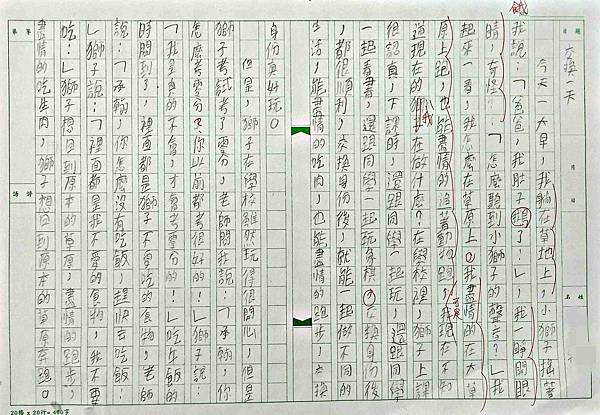 交換一天
今天一大早，我躺在草地上，小獅子搖著
我說：「爸爸，我肚子餓了！」，我一睜開眼
睛，奇怪？「怎麼聽到小獅子的聲音？」我
起來一看，我怎麼在草原上。我盡情的在大草
原上跑，也能盡情的追著動物跑，我現在不知
道現在的獅子在做什麼？在學校裡，獅子上課
很認真，下課時，還跟同學一起玩，還跟同學
一起看書，還跟同學一起玩象棋。交換身份後
，都很順利，交換身份後，就能一起做不同的
生活，能盡情的吃肉，也能盡情的跑步，交換
身份真好玩。
但是，獅子在學校雖然玩得很開心，但是
獅子考試考了零分，老師問我說：「承翰，你
怎麼考零分？你以前都考很好」獅子說：
「我是真的不會，才會考零分的！」吃午飯
時間到了，裡面都是獅子不愛吃的食物，老師
說：「承翰，你怎麼沒有吃飯，趕快去吃飯
！」獅子說：「裡面都是我不愛的食物，我不要
吃！」獅子想回到原本的草原，盡情的跑步，
盡情的吃生肉，獅子想回到原本的草原奔跑。
餓
我
可是
題目
月
日
姓名
評語
等第
20格×20行=400字